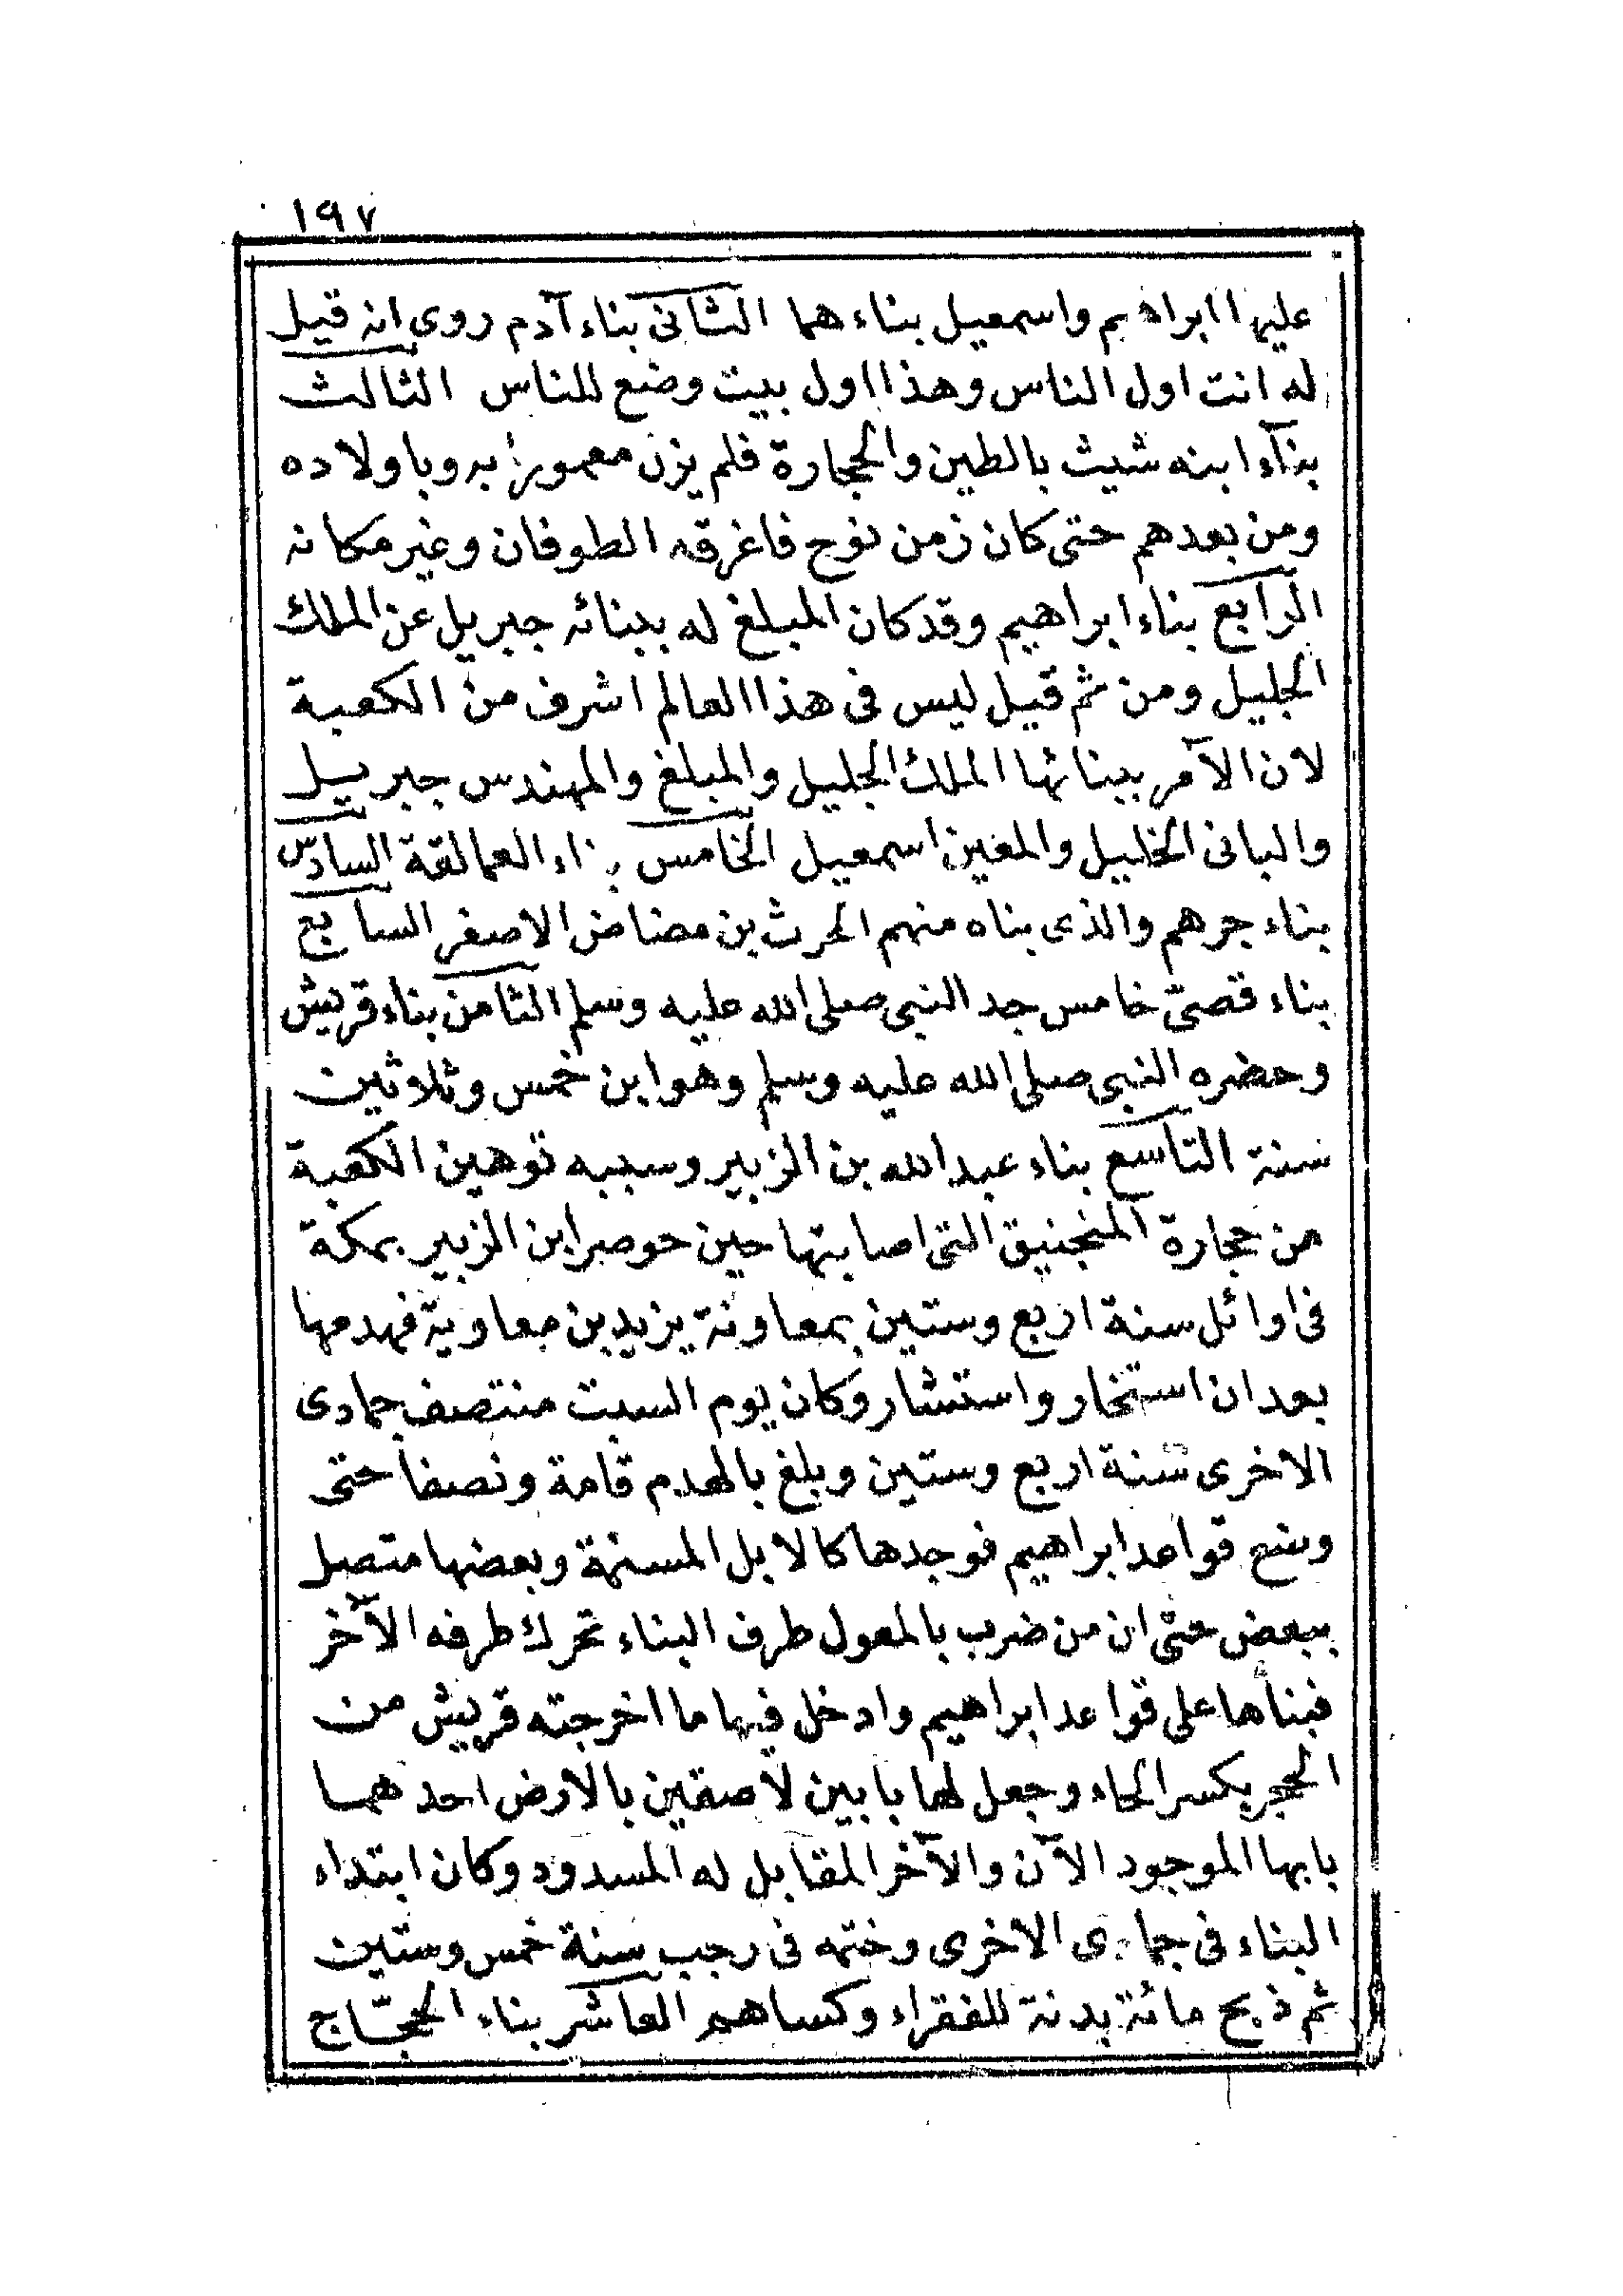 ١٩٧
عليها ابراهيم واسمعيل بناءهما الثانى بناء آدم روى انه قيل
له انت اول الناس وهذا اول بيت وضع للناس الثالث
بناء ابنه شيث بالطين والحجارة فلم يزل معمورا به وباولاده
ومن بعدهم حتى كان زمن نوح فاغرقه الطوفان وغير مكانه
الرابع بناء ابراهيم وقد كان المبلغ له ببنائه جبريل عن الملك
الجليل ومن ثم قيل ليس فى هذا العالم اشرف من الكعبة
لان الآمر ببنائها الملك الجليل والمبلغ والمهندس جبريل
والبانى الخليل والمعين اسمعيل الخامس بناء العمالقة السادس
بناء جرهم والذى بناه منهم الحرث بن مضاض الاصغر السابع
بناء قصىّ خامس جد النبى صلى الله عليه وسلم الثامن بناء قريش
وحضره النبى صلى الله عليه وسلم وهو ابن خمس وثلاثين
سنة التاسع بناء عبدالله بن الزبير وسببه توهين الكعبة
من حجارة المنجنيق التى اصابتها حين حوصر ابن الزبير بمكة
فى اوائل سنة اربع وستين بمعاونة يزيد بن معاوية فهدمها
بعد ان استخار واستشار وكان يوم السبت منتصف جمادى
الاخرى سنة اربع وستين وبلغ بالهدم قامة ونصفا حتى
وسع قواعد ابراهيم فوجدها كالابل المسنمة وبعضها متصل
ببعض حتى ان من ضرب بالمعول طرف البناء تحرك طرفه الآخر
فبناها على قواعد ابراهيم وادخل فيها ما اخرجته قريش من
الحجر بكسر الحاء وجعل لها بابين لاصقين بالارض احدهما
بابها الموجود الآن والآخر المقابل له المسدود وكان ابتداء
البناء فى جمادى الاخرى وختمه فى رجب سنة خمس وستين
ثم ذبح مائة بدنة للفقراء وكساهم العاشر بناء الحجّاج